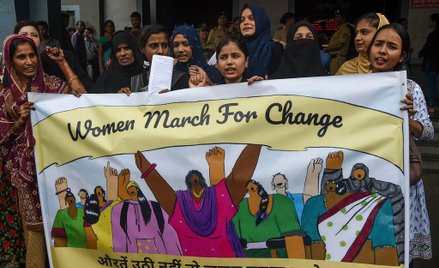 Women March For Change
औरतें उठी नहीं तो